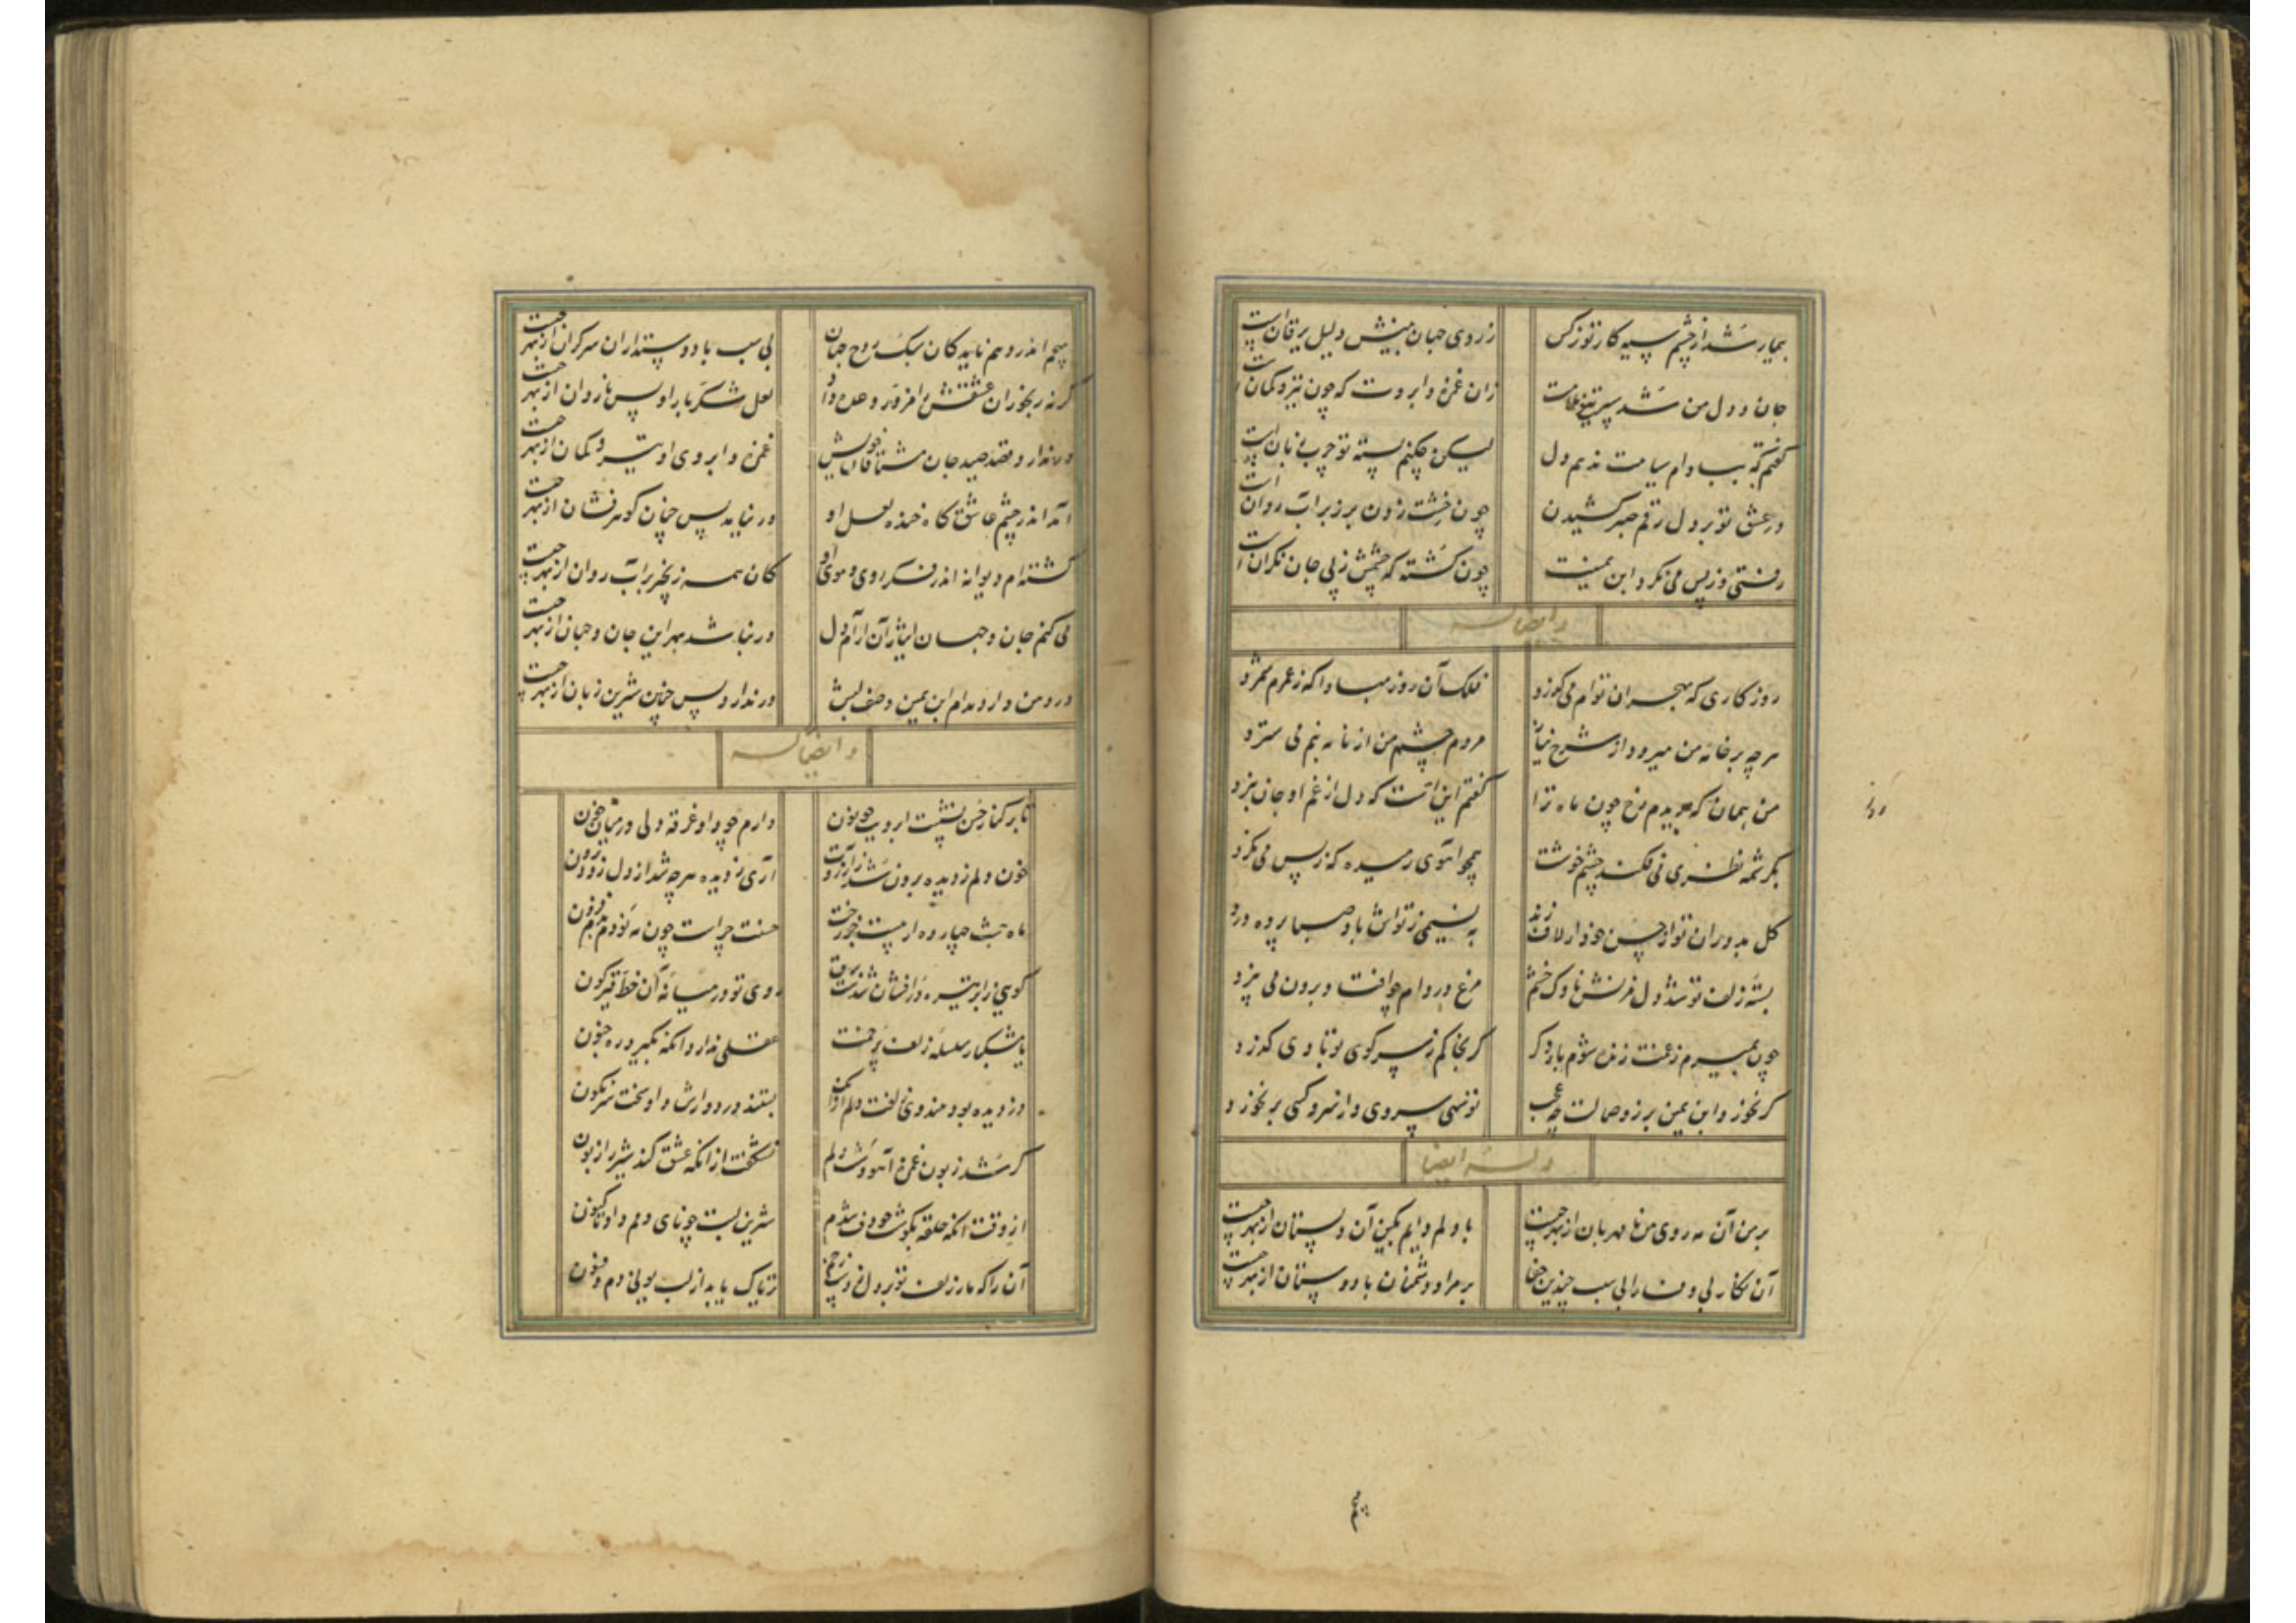 بیمار شد از چشم سیه کار تو نرگس زروی جهان بینش دلیل یرقان است
جان و دل من شد سپر تیغ ملامت زان غمزه و ابروت که چون تیر و کمان است
گفتم که به بادام سیاهت ندهم دل لیکن چکنم پسته تو چرب زبان است
در عشق تو بر دل رقم صبر کشیدن چون خشت زدن بر زبر آب روان است
رفتی و ز پس می نگرد ابن یمینت چون کشته که چشمش ز پی جان نگران است
وایضاله
روزکاری که بهجران توام می کذرد فلک آن روز مبادا که ز عمرم شمرد
هرچه بر خانه من میرود از شرح نیاز مردم چشم من از نامه بنم می سترد
من همان که بدیدم رخ چون ماه ترا گفتم اینست که دل از غم او جان نبرد
بکرشمه نظری می فکند چشم خوشت همچو آهوی رمیده که ز پس می نکرد
کل بدوران تو از حسن خود ار لاف زند به نسیمی ز تواش باد صبا پرده درد
بسته زلف تو شد دل مزنش ناوک خشم مرغ در دام چو افتاد برون می نپرد
چون بمیرم ز غمت زنده شوم بار دکر کر بخاکم ز سر کوی تو بادی کذرد
کر نخورد ابن یمین بر ز وصالت چه عجب تو سهی سروی و از سرو کسی بر نخورد
وله ایضا
بر من آن مه روی من نامهربان از بهر چیست با دلم دایم بکین آن دلستان از بهر چیست
آن نکار بی وفا را بی سبب چندین جفا بر مراد دشمنان با دوستان از بهر چیست
هیچم اندر وهم ناید کان سبک روح جهان بی سبب با دوستداران سرکران از بهر چیست
کر نه رنجوران عشقش را مزور وعده داد لعل شکربار او پس ناروان از بهر چیست
ور ندارد قصد صید جان مشتاقان خویش غمزه و ابروی او تیر و کمان از بهر چیست
آمد اندر چشم عاشق کاه خنده لعل او ور نیاید پس چنان کوهرفشان از بهر چیست
کشته ام دیوانه اندر فکر روی و موی او کان همه زنجیر بر آب روان از بهر چیست
می کنم جان و جهان ایثار آن آرام دل ور نباشد بهر این جان و جهان از بهر چیست
درد من دارد مدام ابن یمین وصف لبش ور ندارد پس چنین شیرین زبان از بهر چیست
وایضاله
تا بر کنار حسن نشست ابرویت چو نون دارم چو داو غرقه دلی در میان خون
خون دلم ز دیده برون شد ز آرزوت آری ز دیده هرچه شد از دل رود برون
ماه شب چهارده ار نیست رخت حسنت چراست چون مه نو دم بدم فزون
کویی ز ابر تیره درافشان شدست برق روی تو در میانه آن خط قیرکون
با مشکبار سلسله زلف پر خمت عقلی ندارد آنکه نکیرد ره جنون
دزدیده بود هندوی زلفت دلم از آن بستند در دوارش و آویخت سرنکون
کر شد زبون غمزه آهووشت دلم نشکفت از آنکه عشق کند شیر را زبون
از وقت آنکه حلقه بکوش چو دف شدم شیرین لبت چو نای دمم داد تا کنون
آن را که مار زلف تو بر دل زد زخم تریاک یابد از لب بی دم و فسون